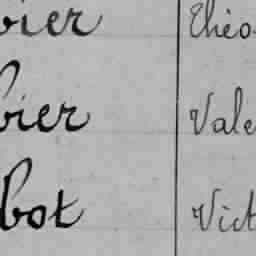 vier Théo
bier Vale
bot Vict